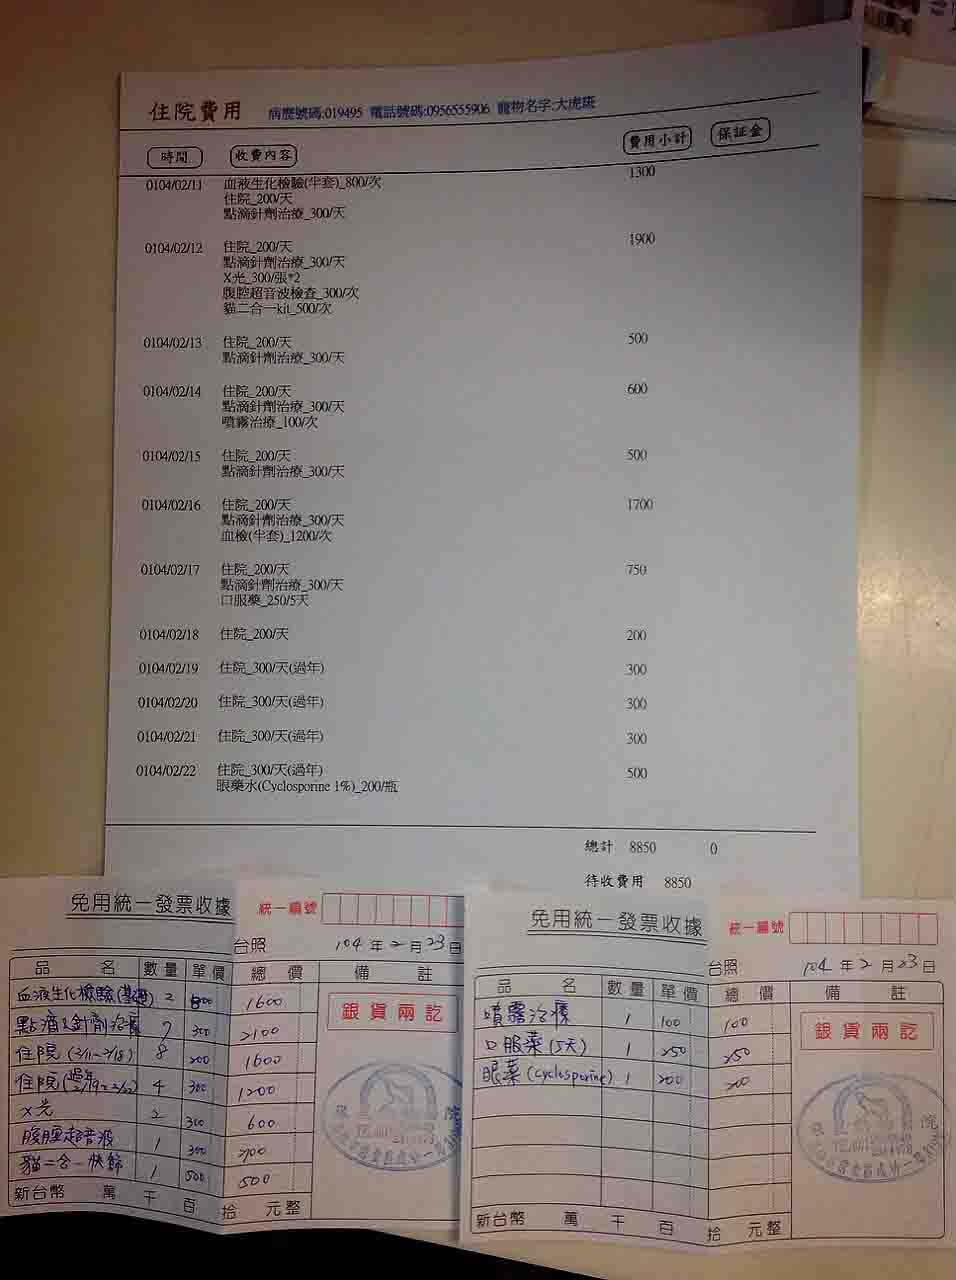 住院費用 病歷號碼:019495 電話號碼:0956555906 寵物名字:大虎斑
時間 收費內容 費用小計 保証金
0104/02/11 血液生化檢驗(半套)_800/次 1300
住院_200/天
點滴針劑治療_300/天
0104/02/12 住院_200/天 1900
點滴針劑治療_300/天
X光_300/張*2
腹腔超音波檢查_300/次
貓二合一kit_500/次
0104/02/13 住院_200/天 500
點滴針劑治療_300/天
0104/02/14 住院_200/天 600
點滴針劑治療_300/天
噴霧治療_100/次
0104/02/15 住院_200/天 500
點滴針劑治療_300/天
0104/02/16 住院_200/天 1700
點滴針劑治療_300/天
血檢(半套)_1200/次
0104/02/17 住院_200/天 750
點滴針劑治療_300/天
口服藥_250/5天
0104/02/18 住院_200/天 200
0104/02/19 住院_300/天(過年) 300
0104/02/20 住院_300/天(過年) 300
0104/02/21 住院_300/天(過年) 300
0104/02/22 住院_300/天(過年) 500
眼藥水(Cyclosporine 1%)_200/瓶
總計 8850 0
待收費用 8850
免用統一發票收據 統一編號
台照 104年2月23日
品名 數量 單價 總價 備註
血液生化檢驗 2 800 1600
點滴針劑治療 7 300 2100
住院(2/11~2/18) 8 200 1600
住院(過年 2/19~2/22) 4 300 1200
X光 2 300 600
腹腔超音波 1 300
貓二合一快篩 1 500 500
新台幣 萬 千 百 拾 元整
銀貨兩訖
免用統一發票收據 統一編號
台照 104年2月23日
品名 數量 單價 總價 備註
噴霧治療 1 100 100
口服藥(5天) 1 250 250
眼藥(cyclosporine) 1 200 200
新台幣 萬 千 百 拾 元整
銀貨兩訖